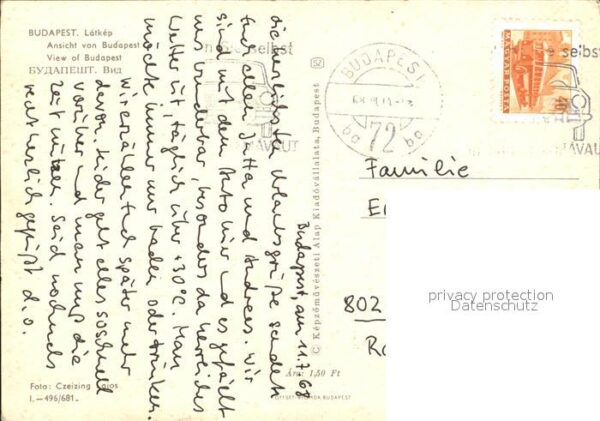 BUDAPEST. Látkép
Ansicht von Budapest
View of Budapest
БУДАПЕШТ. Вид
selbst
MÁVAUT
52
BUDAPEST
72
ba ba
MAGYAR POSTA
selbst
MÁVAUT
Budapest, am 11.7.68
die herzlichsten Urlaubsgrüße sendet
Euch allen Jutta und Andreas. Wir
sind mit dem Auto hier und es gefällt
uns wunderbar, besonders da herrliches
Wetter ist, täglich über +30°C. Man
möchte immer nur baden oder trinken.
Wir erzählen Euch später mehr
davon. Leider geht alles so schnell
vorüber und man muß die
Zeit nützen. Seid nochmals
recht herzlich gegrüßt d. o.
© Képzőművészeti Alap Kiadóvállalata, Budapest
Familie
802
privacy protection
Datenschutz
Ára: 1,50 Ft
OFFSET BUDAPEST
Foto: Czeizing Lajos
I.—496/681.